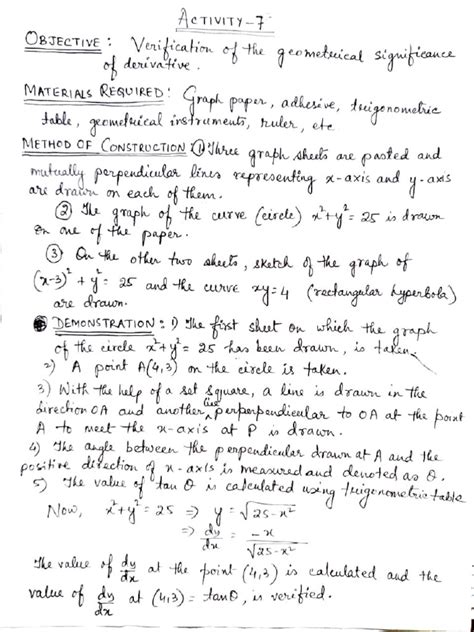 ACTIVITY-7
OBJECTIVE: Verification of the geometrical significance
of derivative.
MATERIALS REQUIRED: Graph paper, adhesive, trigonometric
table, geometrical instruments, ruler, etc
METHOD OF CONSTRUCTION ① Three graph sheets are pasted and
mutually perpendicular lines representing x-axis and y-axis
are drawn on each of them.
② The graph of the curve (circle) x²+y² = 25 is drawn
on one of the paper.
③ On the other two sheets, sketch of the graph of
(x-3)² + y² = 25 and the curve xy=4 (rectangular hyperbola)
are drawn.
DEMONSTRATION: 1) The first sheet on which the graph
of the circle x²+y² = 25 has been drawn, is taken.
2) A point A(4,3) on the circle is taken.
3) With the help of a set square, a line is drawn in the
direction OA and another line perperpendicular to OA at the point
A to meet the x-axis at P is drawn.
4) The angle between the perpendicular drawn at A and the
positive direction of x-axis is measured and denoted as θ.
5) The value of tan θ is calculated using trigonometric table
Now, x²+y² = 25 ⇒ y = √25-x²
⇒ dy/dx = -x/√25-x²
The value of dy/dx at the point (4,3) is calculated and the
value of dy/dx at (4,3) = tanθ, is verified.